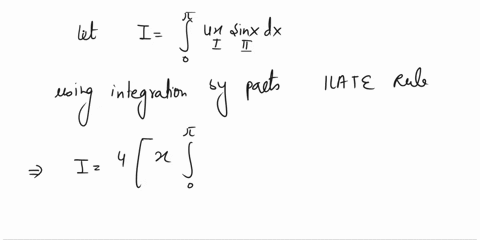 let I = ∫₀^π 4x sinx dx
I II
using integration by parts ILATE Rule
⇒ I = 4 [ x ∫₀^π